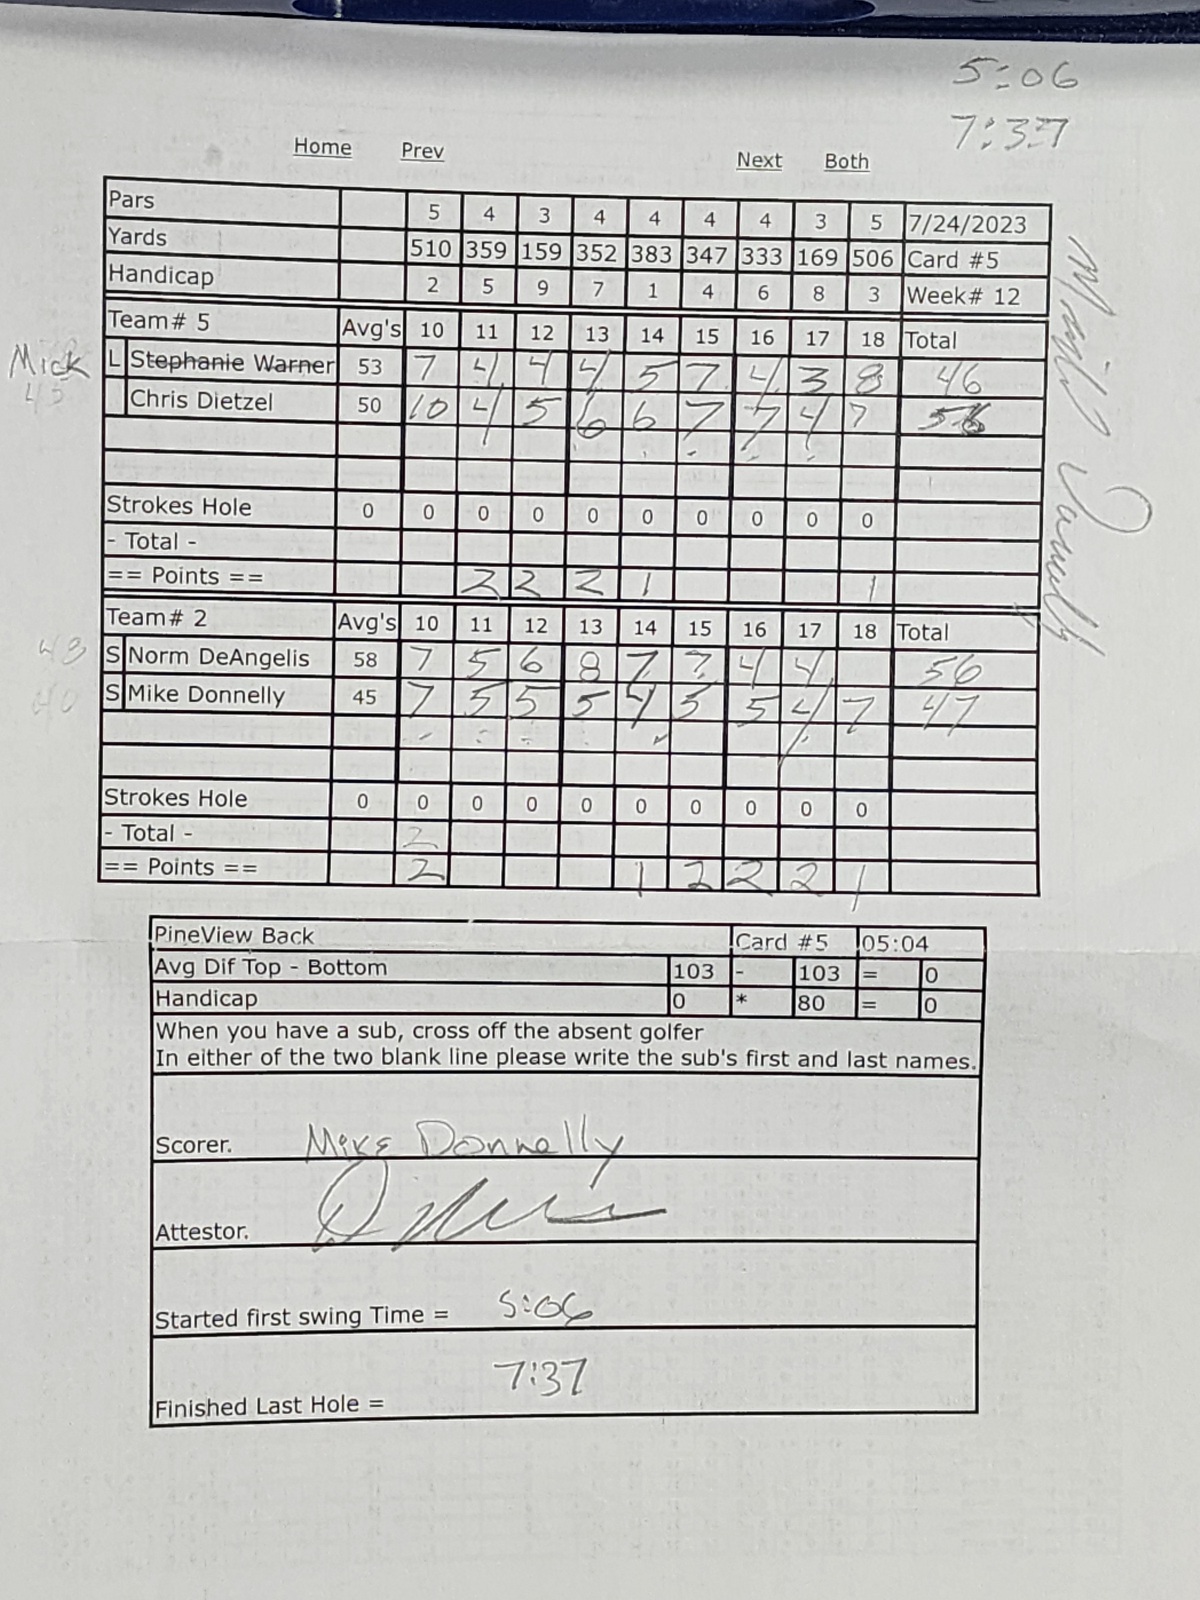 5:06
7:37
Home Prev Next Both
Pars 5 4 3 4 4 4 4 3 5 7/24/2023
Yards 510 359 159 352 383 347 333 169 506 Card #5
Handicap 2 5 9 7 1 4 6 8 3 Week# 12
Team# 5 Avg's 10 11 12 13 14 15 16 17 18 Total
Mick L Stephanie Warner 53 7 4 4 4 5 7 4 3 8 46
45 Chris Dietzel 50 10 4 5 6 6 7 7 4 7
Strokes Hole 0 0 0 0 0 0 0 0 0 0
- Total -
== Points == 2 2 2 1 1
Team# 2 Avg's 10 11 12 13 14 15 16 17 18 Total
43 S Norm DeAngelis 58 7 5 6 8 7 7 4 4 56
40 S Mike Donnelly 45 7 5 5 5 4 5 5 4 7 47
Strokes Hole 0 0 0 0 0 0 0 0 0 0
- Total - 2
== Points == 2 1 2 2 2 1
PineView Back Card #5 05:04
Avg Dif Top - Bottom 103 - 103 = 0
Handicap 0 * 80 = 0
When you have a sub, cross off the absent golfer
In either of the two blank line please write the sub's first and last names.
Scorer. Mike Donnelly
Attestor.
Started first swing Time = 5:06
7:37
Finished Last Hole =